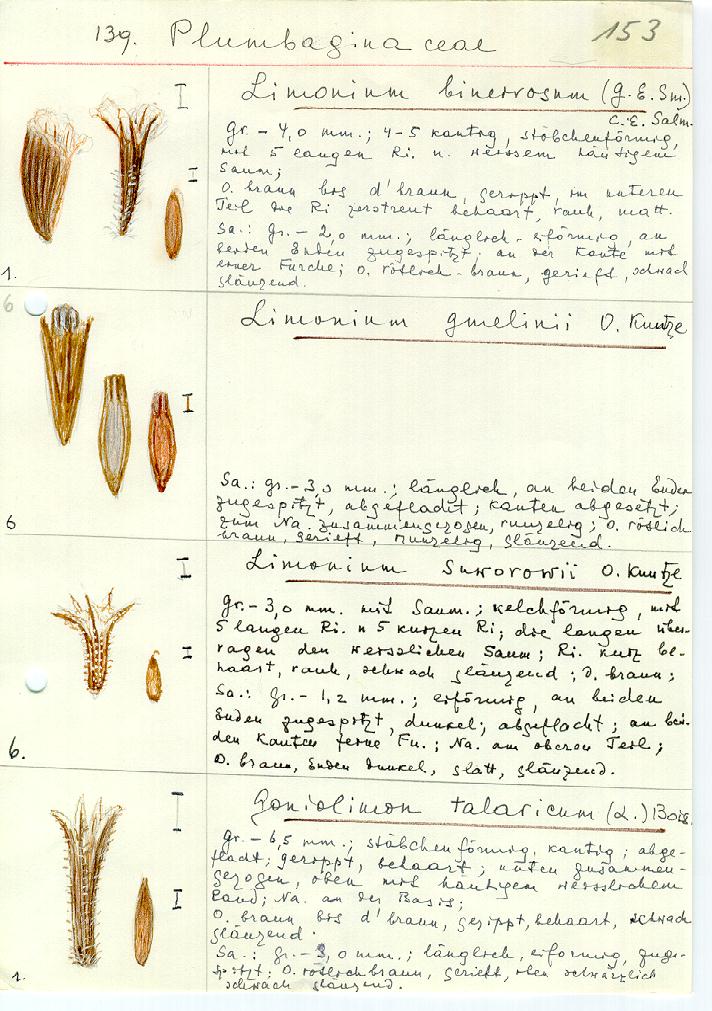 139. Plumbaginaceae
153
Limonium binervosum (G. E. Sm.)
C. E. Salm.
Gr. - 4,0 mm.; 4-5 kantig, stäbchenförmig,
mit 5 langen Ri. u. weissem häutigem
Saum;
O. braun bis d'braun, gerippt, im unteren
Teil die Ri zerstreut behaart, rauh, matt.
Sa.: Gr. - 2,0 mm.; länglich-eiförmig, an
beiden Enden zugespitzt; an der Kante mit
einer Furche; O. rötlich-braun, gerieft, schwach
glänzend.
1.
6
Limonium gmelinii O. Kuntze
Sa.: gr. - 3,0 mm.; länglich, an beiden Enden
zugespitzt, abgeflacht; Kanten abgesetzt;
zum Na. zusammengezogen, runzelig; O. rötlich
braun, gerieft, runzelig, glänzend.
6
Limonium Suworowii O. Kuntze
gr. - 3,0 mm. mit Saum.; kelchförmig, mit
5 langen Ri. u 5 kurzen Ri; die langen über-
ragen den weisslichen Saum; Ri. kurz be-
haart, rauh, schwach glänzend; O. braun;
Sa.: Gr. - 1,2 mm.; eiförmig, an beiden
Enden zugespitzt, dunkel; abgeflacht; an bei-
den Kanten feine Fu.; Na. am oberen Teil;
O. braun, Enden dunkel, glatt, glänzend.
6.
Goniolimon tataricum (L.) Boiss.
gr. - 6,5 mm.; stäbchenförmig, kantig; abge-
flacht; gerippt, behaart; unten zusammen-
gezogen, oben mit häutigem weisslichem
Rand; Na. an der Basis;
O. braun bis d'braun, gerippt, behaart, schwach
glänzend.
Sa.: gr. - 3,0 mm.; länglich, eiförmig, zuge-
spitzt; O. rötlichbraun, gerieft, oben schwärzlich
schwach glänzend.
1.